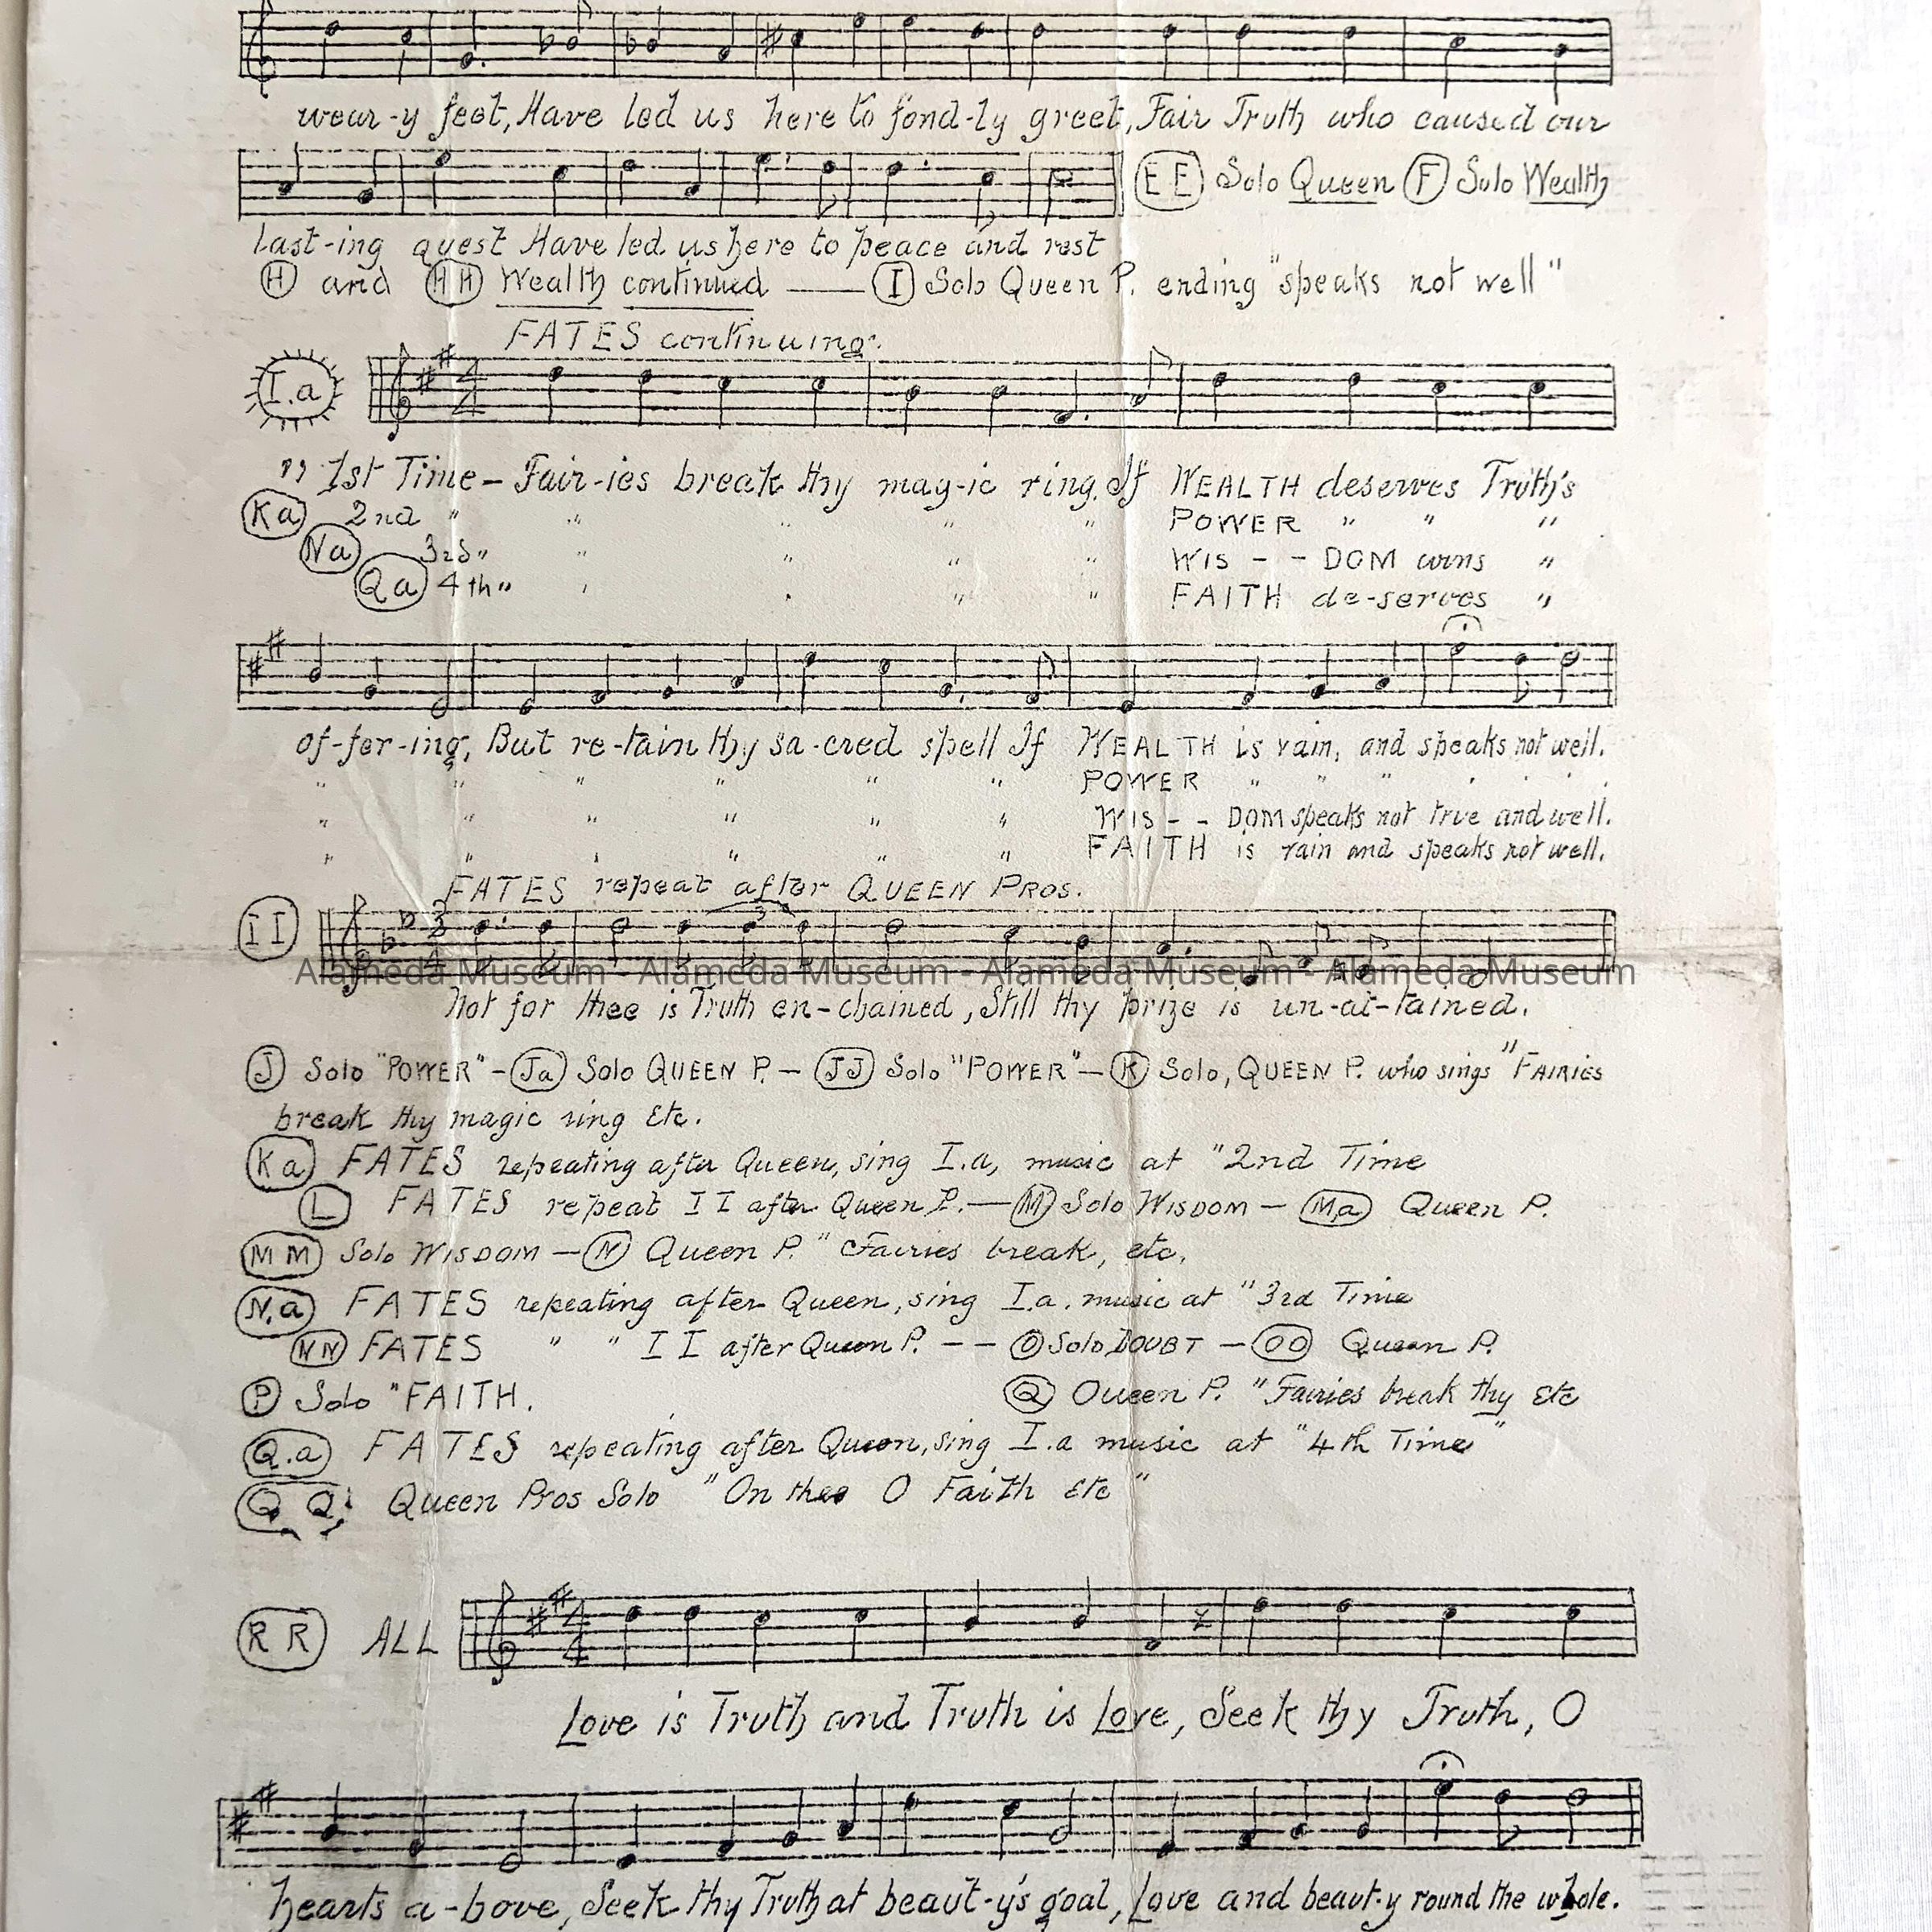 wear-y feet, Have led us here to fond-ly greet, Fair Truth who caused our
E E Solo Queen F Solo Wealth
last-ing quest Have led us here to peace and rest
H and H H Wealth continued —— I Solo Queen P. ending "speaks not well"
FATES continuing.
I.a
4
4
" 1st Time - Fair-ies break thy mag-ic ring. If WEALTH deserves Truth's
Ka 2nd " " " " " POWER " " "
Na 3rd " " " " " WIS - - DOM wins "
Qa 4th " " " " " FAITH de-serves "
of-fer-ing, But re-tain thy sa-cred spell If WEALTH is vain, and speaks not well.
" " " " " " POWER " " " " " "
" " " " " " WIS - - DOM speaks not true and well.
" " " " " " FAITH is vain and speaks not well.
FATES repeat after QUEEN PROS.
I I
3
4
3
Alameda Museum - Alameda Museum - Alameda Museum - Alameda Museum
Not for thee is Truth en-chained, Still thy prize is un-at-tained.
J Solo "POWER" - Ja Solo QUEEN P. - JJ Solo "POWER" - K Solo, QUEEN P. who sings "FAIRIES
break thy magic ring Etc.
Ka FATES repeating after Queen, sing I.a, music at "2nd Time
L FATES repeat I I after Queen P. — M Solo WISDOM - Ma Queen P.
M M Solo WISDOM - N Queen P. "Fairies break, etc.
N.a FATES repeating after Queen, sing I.a. music at "3rd Time
N N FATES " " I I after Queen P. - - O Solo DOUBT - OO Queen P.
P Solo "FAITH. Q Queen P. "Fairies break thy Etc
Q.a FATES repeating after Queen, sing I.a music at "4th Time"
Q Q. Queen Pros Solo "On thee O Faith Etc"
R R ALL
4
4
Love is Truth and Truth is Love, Seek thy Truth, O
hearts a-bove, Seek thy Truth at beaut-y's goal, Love and beaut-y round the whole.